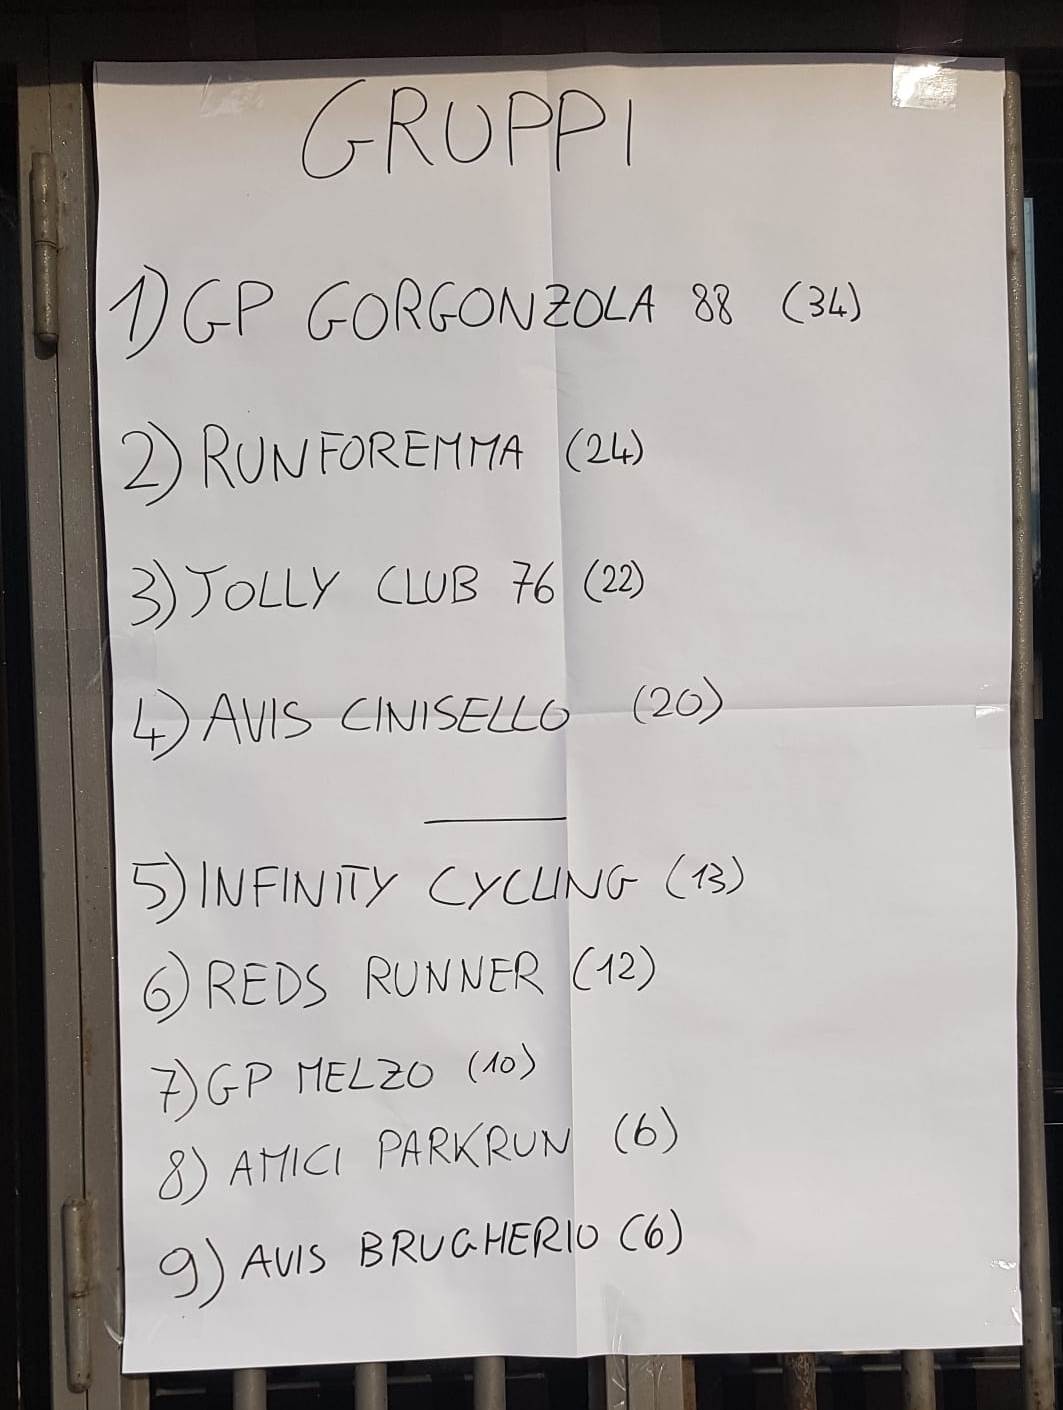 GRUPPI
1) GP GORGONZOLA 88 (34)
2) RUNFOREMMA (24)
3) JOLLY CLUB 76 (22)
4) AVIS CINISELLO (20)
5) INFINITY CYCLING (13)
6) REDS RUNNER (12)
7) GP MELZO (10)
8) AMICI PARKRUN (6)
9) AVIS BRUGHERIO (6)